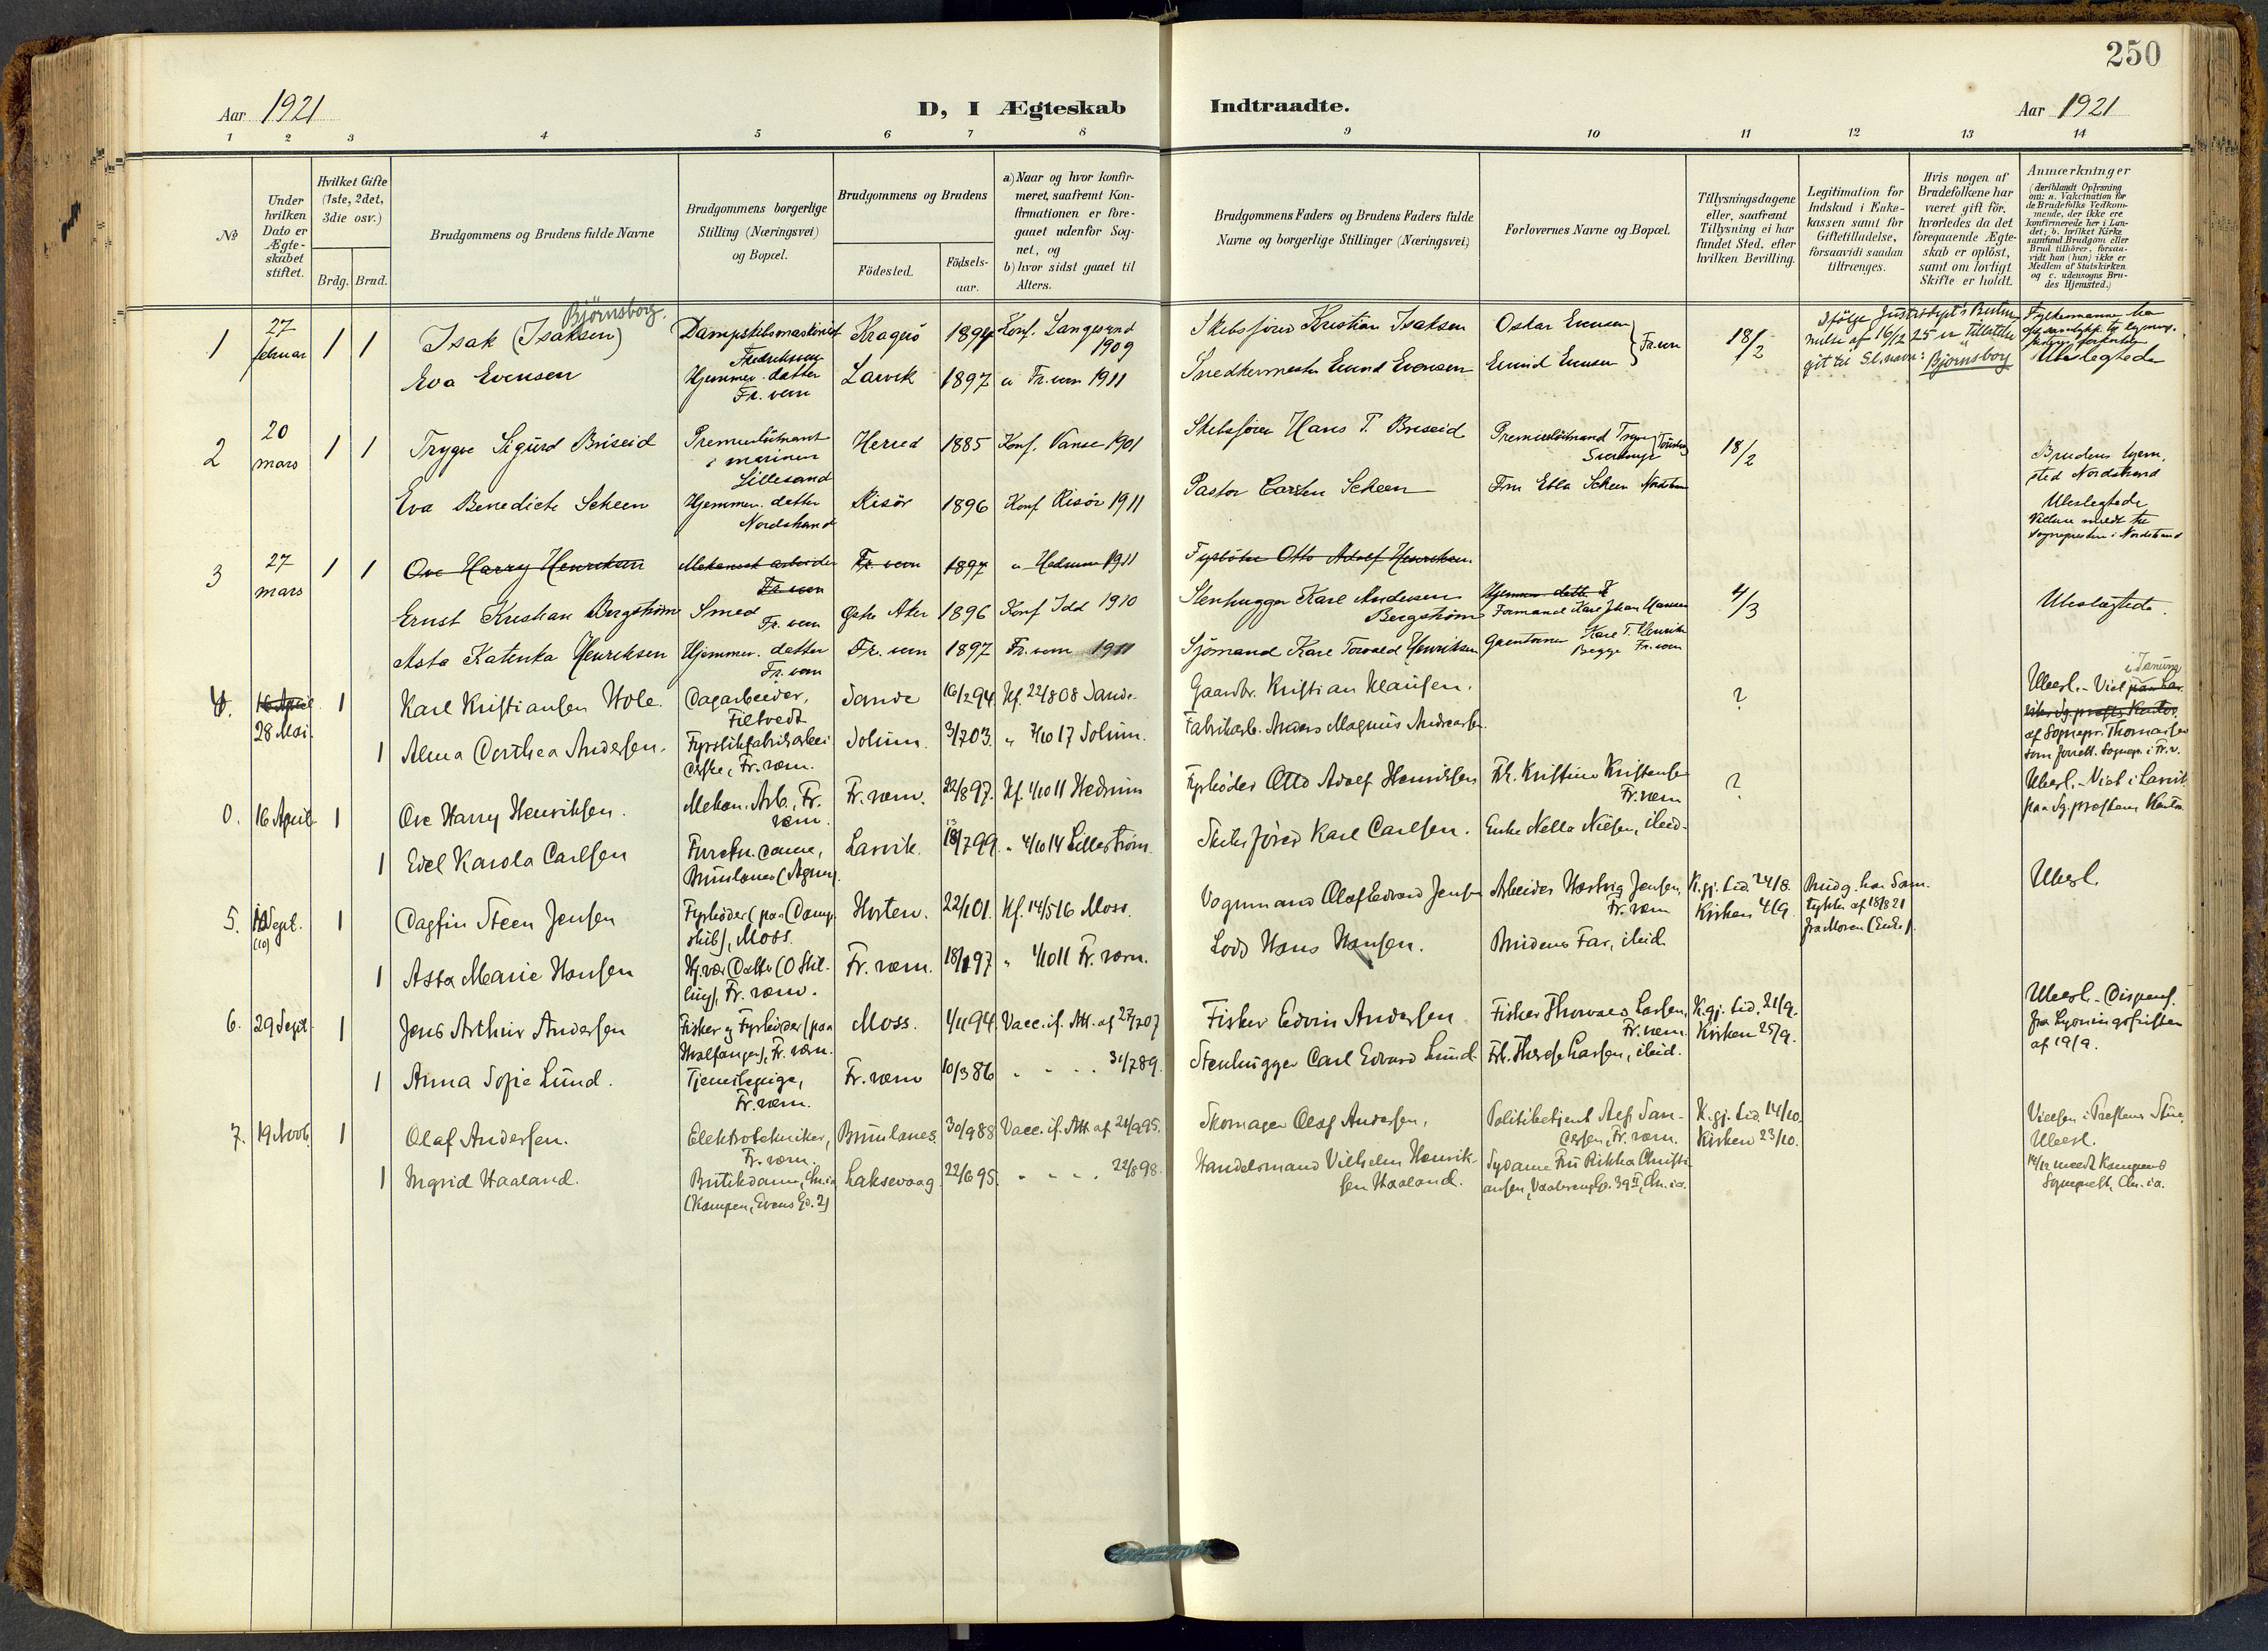 250
Aar 1921
D, I Ægteskab Indtraadte.
Aar 1921
1 2 3 4 5 6 7 8 9 10 11 12 13 14
№
Under hvilken Dato er Ægte-skabet stiftet.
Hvilket Gifte (1ste, 2det, 3die osv.)
Brdg. Brud.
Brudgommens og Brudens fulde Navne
Brudgommens borgerlige Stilling (Næringsvei) og Bopæl.
Brudgommens og Brudens
Fødested.
Fødsels-aar.
a) Naar og hvor konfir-meret, saafremt Kon-firmationen er fore-gaaet udenfor Sog-net, og
b) hvor sidst gaaet til Alters.
Brudgommens Faders og Brudens Faders fulde Navne og borgerlige Stillinger (Næringsvei)
Forlovernes Navne og Bopæl.
Tillysningsdagene eller, saafremt Tillysning ei har fundet Sted, efter hvilken Bevilling.
Legitimation for Indskud i Enke-kassen samt for Giftetilladelse, forsaavidt saadan tiltrænges.
Hvis nogen af Brudefolkene har været gift før, hvorledes da det foregaaende Ægte-skab er opløst, samt om lovligt Skifte er holdt.
Anmærkninger
(deriblandt Oplysning om: a. Vaktination for de Brudefolks Vedkom-mende, der ikke ere konfirmerede her i Lan-det; b. hvilket Kirke-samfund Brudgom eller Brud tilhører, forsaa-vidt han (hun) ikke er Medlem af Statskirken og c. udensogns Bru-des Hjemsted.)
Bjørnsborg.
1 27 februar 1 1 Isak (Isaksen) Dampskibsmaskinist Fredriksvern Kragerø 1894 Konf. Langesund 1909 Skibsfører Kristian Isaksen Oskar Evensen 18/2
Ifølge Justisdept's
av 16/12 25 er
git til Sl.navn: Bjørnsborg
Eva Evensen Hjemmev. datter Fr. vern Larvik 1897 Fr. vern 1911 Snedkermester Evensen Fr. vern Ubeslegtede
2 20 mars 1 1 Trygve Sigurd Briseid Premierløitnant i marinen Lillesand Herred 1885 Konf. Vanse 1901 Skibsfører Hans T. Briseid Premierløitnand 18/2 Brudens hjem-sted Nordstrand
Eva Benedicte Scheen Hjemmev. datter Nordstrand Risør 1896 Konf Risør 1911 Pastor Carsten Scheen Fru Ebba Scheen Ubeslegtede
3 27 mars 1 1 Ove Harry Henriksen Mekanisk arbeider Fr. vern Fr. vern 1897 Hedrum 1911 Fyrbøter Otto Adolf Henriksen
Ernst Kristian Bergstrøm Smed Fr. vern Østre Aker 1896 Konf Idd 1910 Stenhugger Karl Andersen Bergstrøm Hjemmev. datter Formand Karl Johan Hansen 4/3 Ubeslægtede.
Asta Katinka Henriksen Hjemmev. datter Fr. vern Fr. vern 1897 Fr. vern 1911 Sjømand Karl Torvald Henriksen Karl T. Henriksen Begge Fr. vern
4. 16 April 28 Mai. 1 Karl Kristiansen Hole. Dagarbeider, Filtvedt Sande 16/2 94. Kf. 22/8 08 Sande. Gaardbr. Kristian Klausen. ? Ubesl. - Viet
af Sognepr. Thomassen
1 Alma Dorthea Andersen. Fyrstikfabrikarbei-derske, Fr. værn. Solum. 3/7 03. " 7/10 17 Solum. Fabrikarb. Anders Magnus Andreassen.
0. 16 April 1 Ove Harry Henriksen. Mekan. Arb., Fr. værn. Fr. værn. 22/8 97. Kf. 1/10 11 Hedrum Fyrbøder Otto Adolf Henriksen Frk. Kristine Kristensen Fr. værn ? Ubesl. - Viet i Larvik paa Sg.prestens Kontor
1 Edel Karola Carlsen Brunlanes (Agnes). Larvik. 7 99. " 4/10 14 Lillestrøm. Skibsfører Karl Carlsen. Enke Nella Nilsen, ibid.
5. Sept. (10) 1 Dagfin Steen Jensen Fyrbøder (paa Damp-skib), Moss. Horten. 22/1 01. Kf. 14/5 16 Moss. Vognmand Olaf Edvard Jensen Arbeider Hartvig Jensen, Fr. værn K.gj. Lid. 24/8. Kirken 4/9. Brudg. har Sam-tykke af 18/8 21 fra Moren (Enke). Ubesl.
1 Asta Marie Hansen Hj.vær. Datter (O Stil-ling), Fr. værn. Fr. værn. 18/1 97 " 1/10 11 Fr. værn. Lods Hans Hansen. Brudens Far, ibid.
6. 29 Sept. 1 Jens Arthur Andersen Fisker og Fyrbøder (paa Hvalfanger), Fr. værn. Moss. 1/11 94 Vacc. if. Att. af 27/7 07 Fisker Edvin Andersen Fisker Thorvald Larsen, Fr. værn. K.gj. Lid. 21/9. Kirken 25/9. Ubesl. - Dispens. fra Lysningsfristen af 19/9.
1 Anna Sofie Lund. Tjenestepige, Fr. værn. Fr. værn 10/3 86 " - - - 31/7 89. Stenhugger Carl Edvard Lund. Frk. Therese Larsen, ibid.
7. 19 Novb. 1 Olaf Andersen. Elektrotekniker, Fr. værn. Brunlanes. 30/9 88 Vacc. if. Att. af 21/9 95. Skomager Olaf Andersen, Politibetjent Alf San-dersen, Fr. værn. K.gj. Lid. 14/10. Kirken 23/10. Vielsen i Prestens Stue. Ubesl.
1 Ingrid Haaland. Butikdame, Chr.ia (Kampen, Evens Gd. 2) Laksevaag 22/6 95. " - - - 22/8 98. Handelsmand Vilhelm Henrik-sen Haaland. Sydame Fru Rikka Christi-ansen, Vaalereng Gd. 39 II, Chr.ia. 14/12 meldt Kampens Sogneprest, Chr.ia.